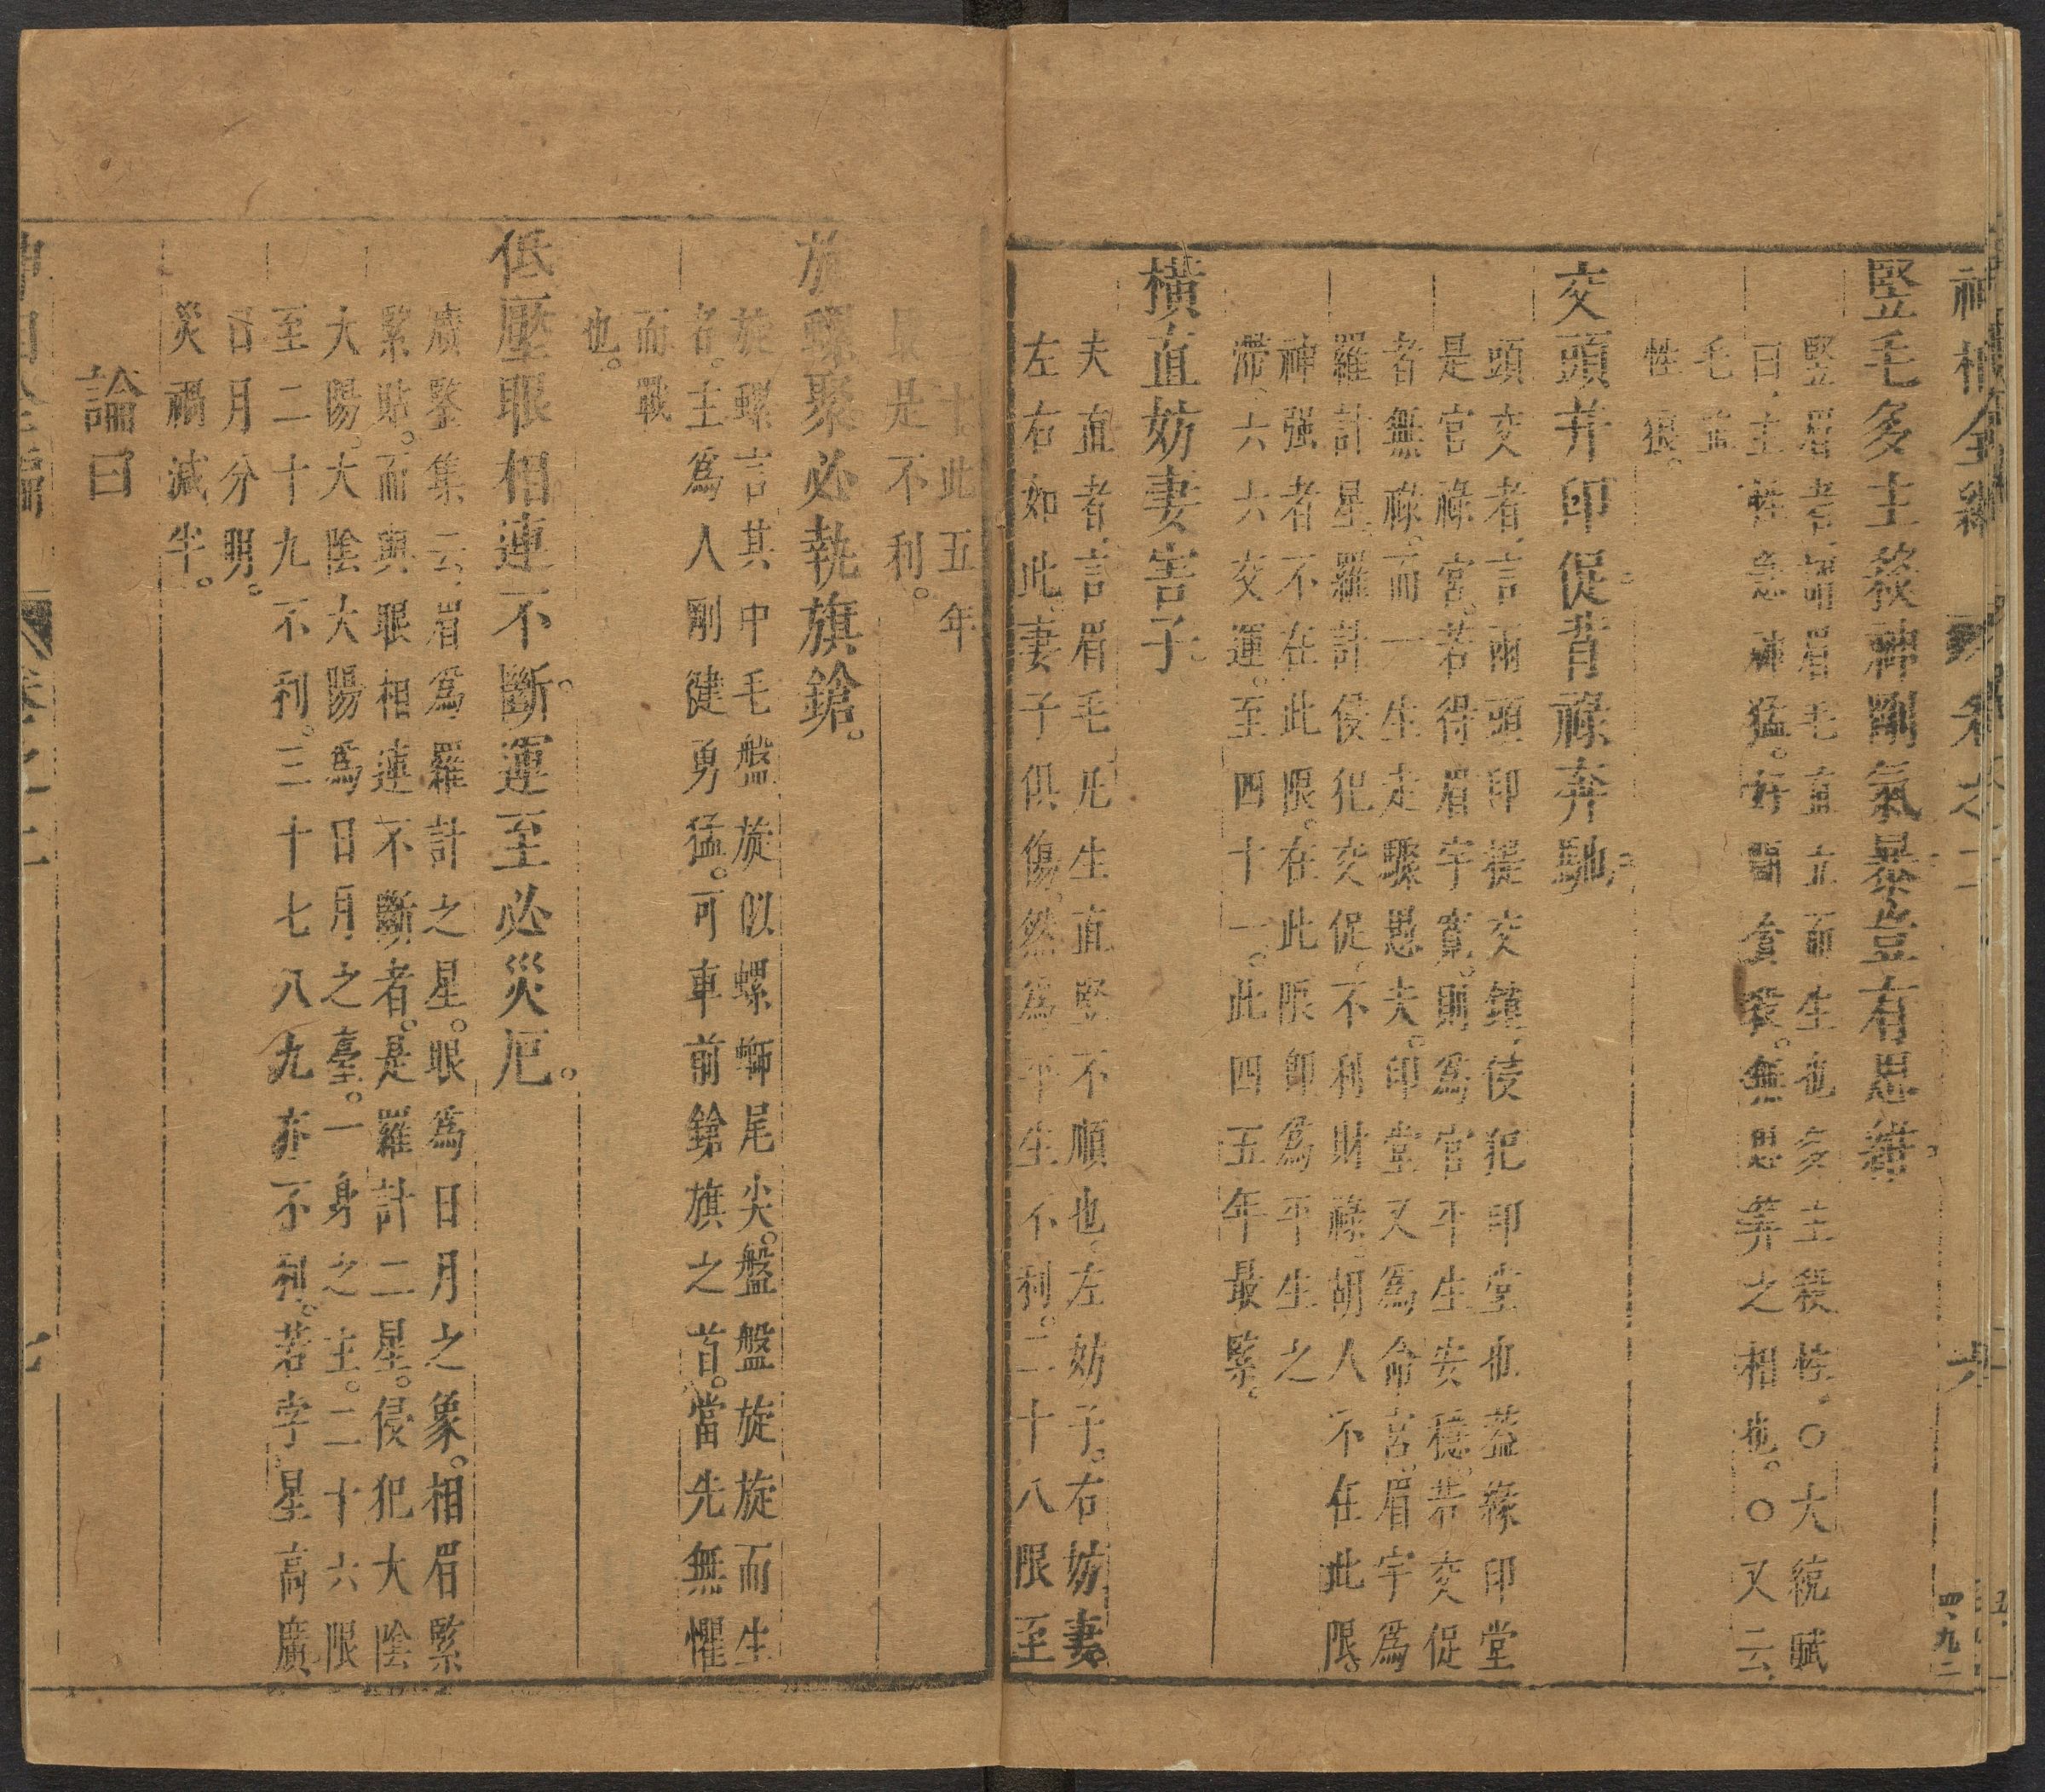 神相全編 卷之二 六 四、九二
竪毛多主發神剛氣暴豈有思維。
竪眉者、謂眉毛直立而生也多主殺性、○大統賦
曰、主性急神猛。好鬪貪殺。無思筭之相也。○又云、
毛直
性狠。
交頭并印促背祿奔馳
頭交者、言兩頭印提交鎖、侵犯印堂也葢緣印堂
是官祿宮。若得眉宇寬。則爲官平生安穩。若交促
者無祿。而一生走驟愚夫。印堂又爲命宮、眉宇爲
羅計星、羅計侵犯交促、不利財祿、胡人不在此限。
神强者不在此限。在此限卽爲平生之
滯、六六交運。至四十一。此四五年最緊。
橫直妨妻害子
夫直者、言眉毛、凡生直竪不順也、左妨子。右妨妻。
左右如此。妻子俱傷。然爲平生不利。二十八限至
十。此五年
最是不利。
旋螺聚必執旗鎗。
旋螺言其中毛盤旋似螺螄尾尖。盤盤旋旋而生
者。主爲人剛健勇猛。可車前鎗旗之首。當先無懼
而戰
也。
低壓眼相連不斷。運至必災厄。
廣鑒集云、眉爲羅計之星。眼爲日月之象。相眉緊
緊貼。而與眼相連不斷者。是羅計二星。侵犯大陰
大陽。大陰大陽爲日月之臺。一身之主。二十六限
至二十九不利。三十七八九亦不利。若字星高廣
日月分明。
災禍減半。
論曰
神相全編 卷之二 七